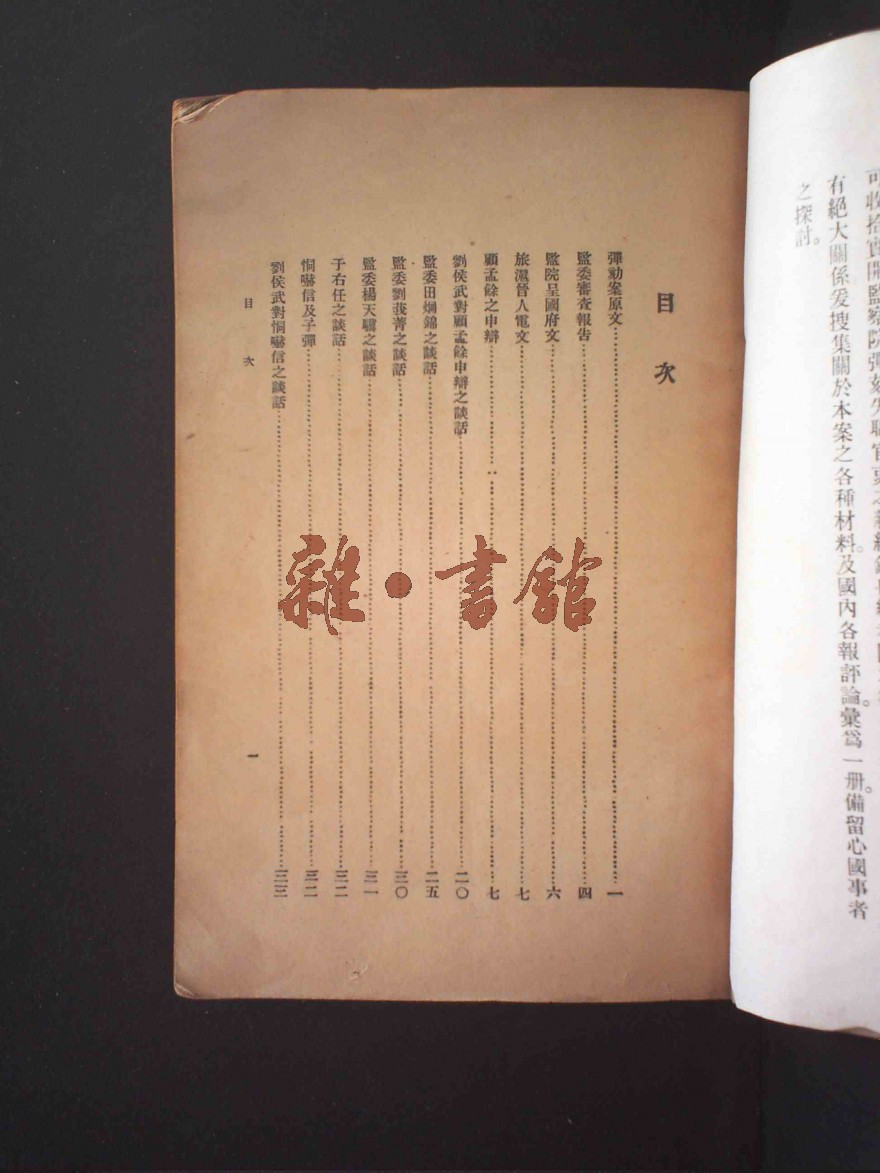 有絕大關係爰搜集關於本案之各種材料及國內各報評論。彙爲一册備留心國事者
之探討。
目次
彈劾案原文 一
監委審查報告 四
監院呈國府文 六
旅滬晉人電文 七
顧孟餘之申辯 七
劉侯武對顧孟餘申辯之談話 二〇
監委田烱錦之談話 二五
監委劉莪菁之談話 三〇
監委楊天驥之談話 三一
于右任之談話 三二
恫嚇信及子彈 三二
劉侯武對恫嚇信之談話 三三
目次 一
雜·書館